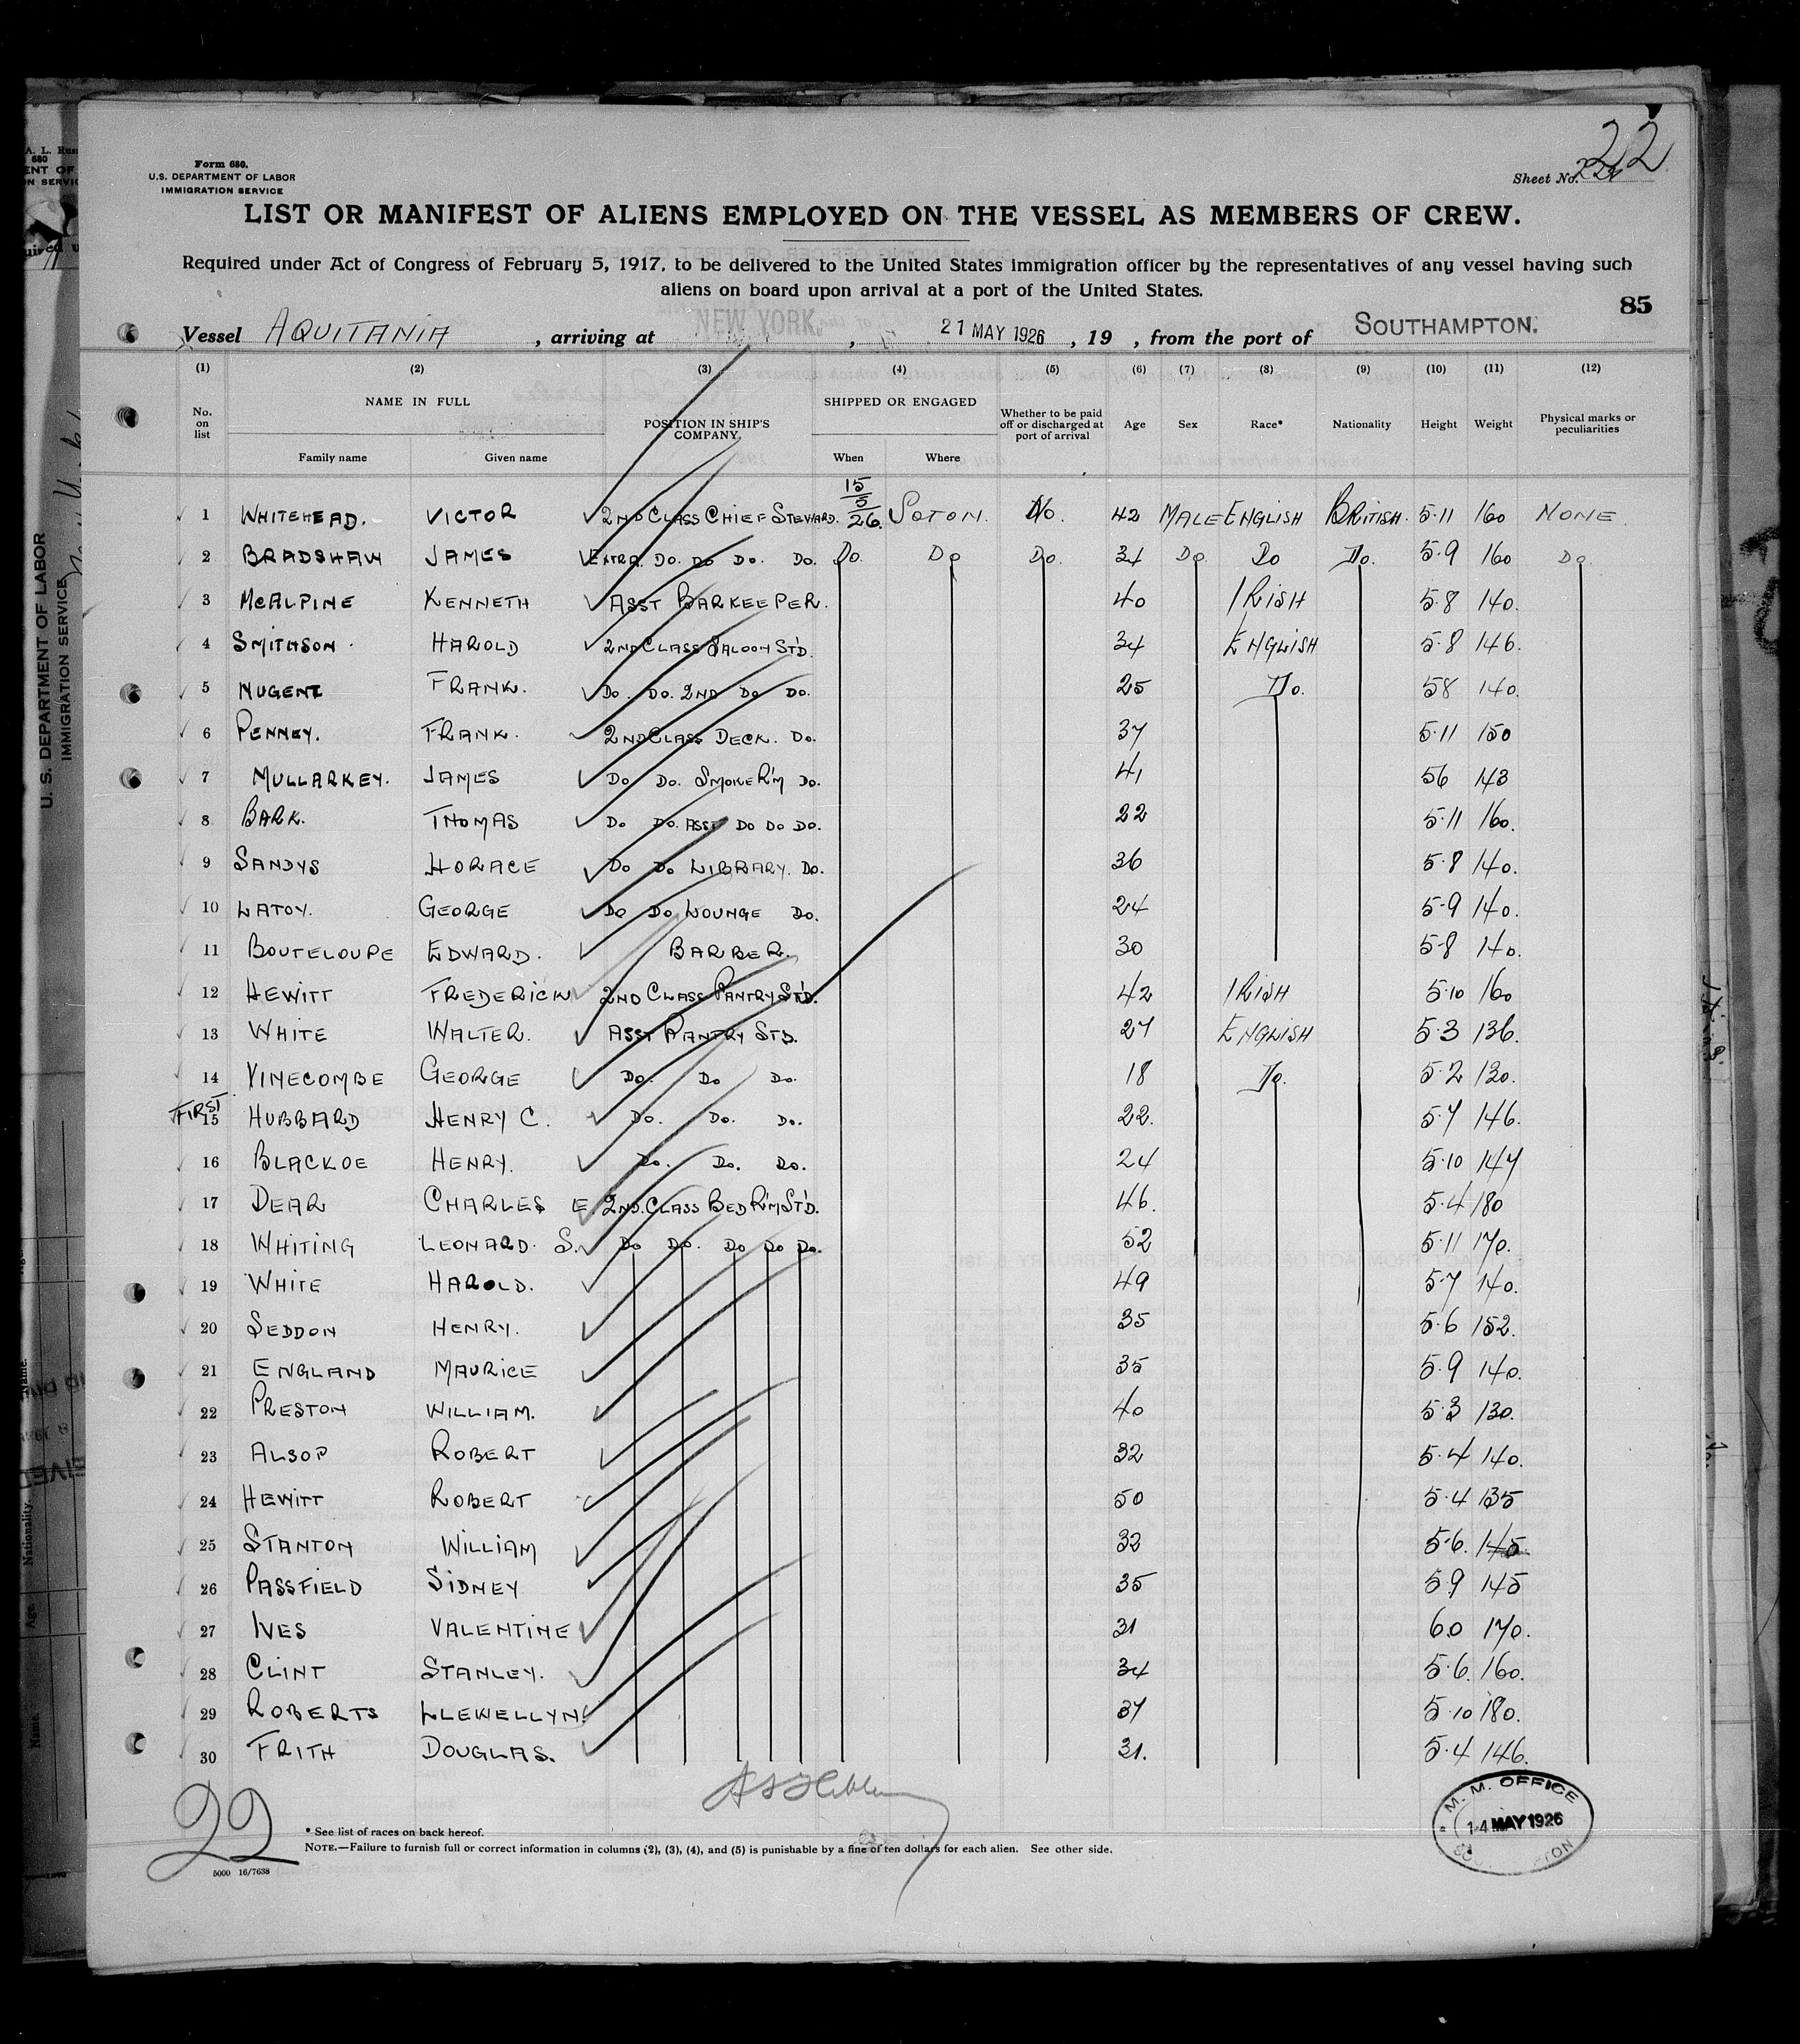 Form 680.
U.S. DEPARTMENT OF LABOR
IMMIGRATION SERVICE
Sheet No. 22
22
LIST OR MANIFEST OF ALIENS EMPLOYED ON THE VESSEL AS MEMBERS OF CREW.
Required under Act of Congress of February 5, 1917, to be delivered to the United States immigration officer by the representatives of any vessel having such
aliens on board upon arrival at a port of the United States.
85
Vessel AQUITANIA, arriving at NEW YORK, 21 MAY 1926, 19 , from the port of SOUTHAMPTON.
(1) (2) (3) (4) (5) (6) (7) (8) (9) (10) (11) (12)
No. on list NAME IN FULL POSITION IN SHIP'S COMPANY. SHIPPED OR ENGAGED Whether to be paid off or discharged at port of arrival Age Sex Race* Nationality Height Weight Physical marks or peculiarities
Family name Given name When Where
1 WHITEHEAD. VICTOR 2ND CLASS CHIEF STEWARD. 15/5/26 SOTON. No. 42 MALE ENGLISH BRITISH. 5.11 160 NONE.
2 BRADSHAW JAMES EXTRA. DO. DO DO. DO. DO. DO DO. 34 DO. DO DO. 5.9 160 DO
3 McALPINE KENNETH ASST BARKEEPER. 40 IRISH 5.8 140.
4 SMITHSON. HAROLD 2ND CLASS SALOON STD. 34 ENGLISH 5.8 146.
5 NUGENT FRANK. DO. DO. 2ND DO DO. 25 DO. 58 140.
6 PENNEY. FRANK. 2ND CLASS DECK. DO. 37 5.11 150
7 MULLARKEY. JAMES DO DO. SMOKE R'M DO. 41 56 143
8 BARK. THOMAS DO DO. ASST DO DO DO. 22 5.11 160.
9 SANDYS HORACE DO DO LIBRARY. DO. 36 5.8 140.
10 LATOY. GEORGE DO DO LOUNGE DO. 24 5.9 140.
11 BOUTELOUPE EDWARD. BARBER. 30 5.8 140.
12 HEWITT FREDERICK 2ND CLASS PANTRY ST'D. 42 IRISH 5.10 160
13 WHITE WALTER. ASST PANTRY STD. 27 ENGLISH 5.3 136.
14 VINECOMBE GEORGE DO. DO DO. 18 DO. 5.2 130.
FIRST
15 HUBBARD HENRY C. DO. DO. DO. 22. 5.7 146.
16 BLACKOE HENRY. DO. DO. DO. 24 5.10 147
17 DEAR CHARLES E. 2ND. CLASS BED R'M ST'D. 46. 5.4 180
18 WHITING LEONARD. S. DO DO. DO DO DO. 52 5.11 170.
19 WHITE HAROLD. 49 5.7 140.
20 SEDDON HENRY. 35 5.6 152.
21 ENGLAND MAURICE 35 5.9 140.
22 PRESTON WILLIAM. 40 5.3 130.
23 ALSOP ROBERT 32 5.4 140.
24 HEWITT ROBERT 50 5.4 135
25 STANTON WILLIAM 32 5.6. 145
26 PASSFIELD SIDNEY 35 5.9 145
27 IVES VALENTINE 31 6.0 170.
28 CLINT STANLEY. 34 5.6. 160.
29 ROBERTS LLEWELLYN. 37 5.10 180.
30 FRITH DOUGLAS. 31. 5.4 146.
22
* See list of races on back hereof.
NOTE.—Failure to furnish full or correct information in columns (2), (3), (4), and (5) is punishable by a fine of ten dollars for each alien. See other side.
5000 16/7638
M. M. OFFICE
14 MAY 1926
U. S. DEPARTMENT OF LABOR
IMMIGRATION SERVICE
Nationality.
Age.
Name.